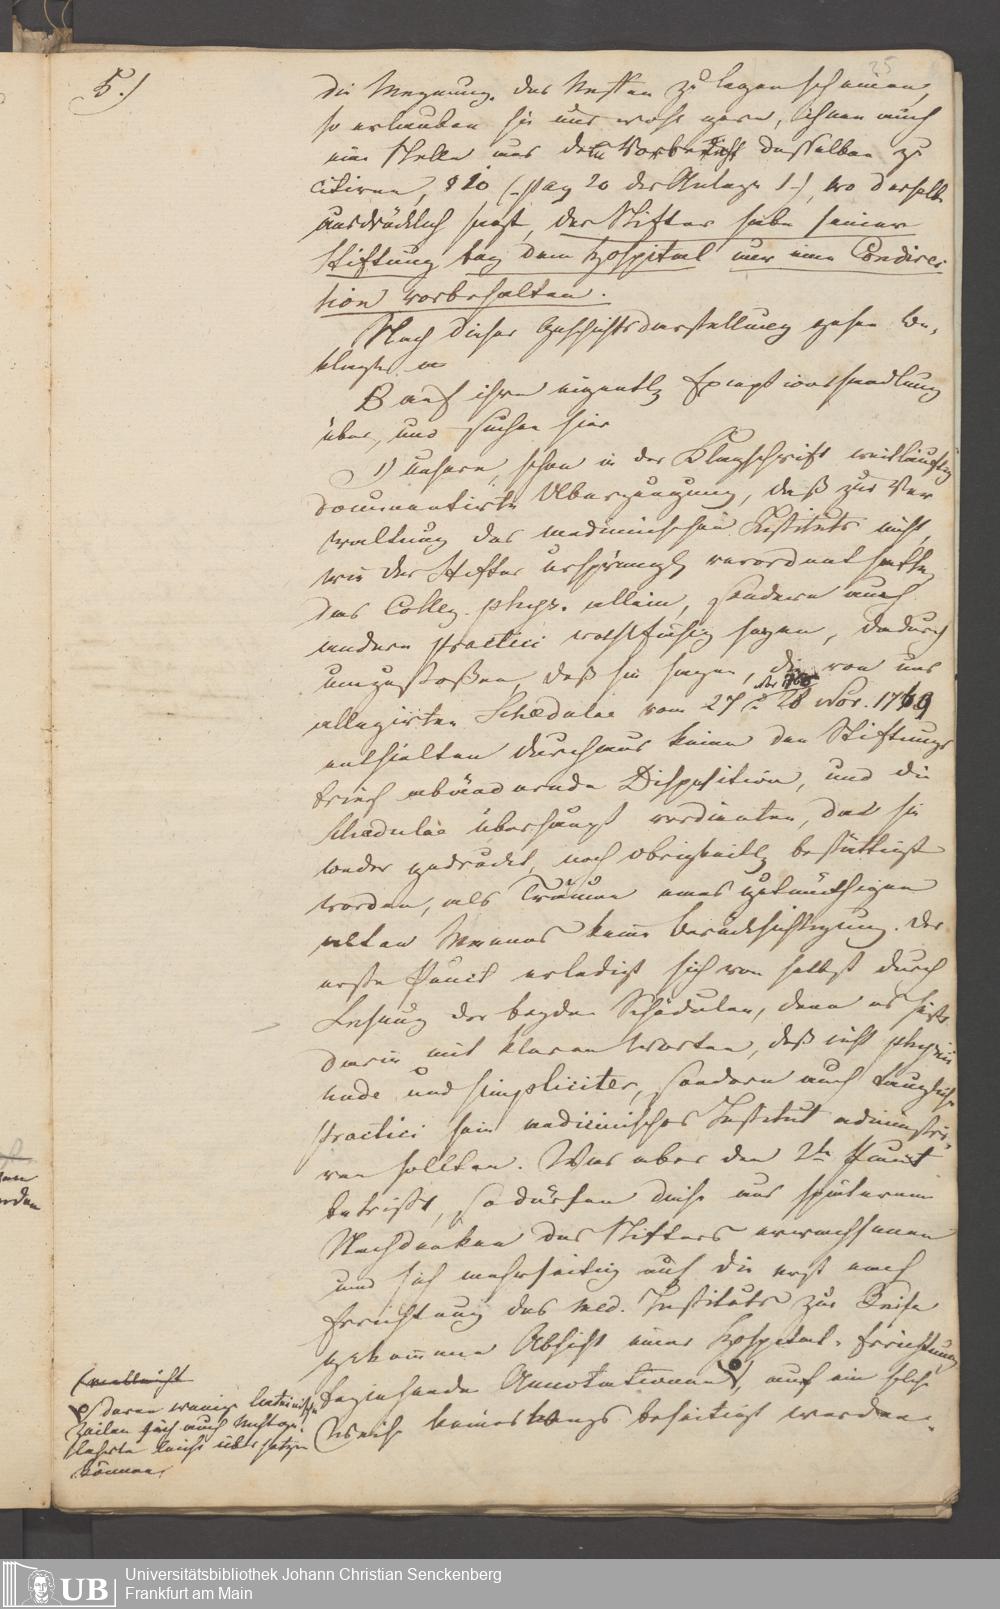 25
5.)
die Meynung des Neffen zu legen scheinen,
so erlauben sie uns wohl gern, ihnen auch
eine Stelle aus dem Vorbericht desselben zu
citiren, § 20 (pag 20 der Anlage 1.), wo derselbe
ausdrücklich sagt, der Stifter habe seiner
Stiftung bey dem Hospital nur eine Condirec-
tion vorbehalten.
Nach dieser Geschichtsdarstellung gehen Be-
klagte
B auf ihre eigentl. Exceptionshandlung
über, und suchen hier
1) unsere, schon in der Klagschrift weitläuftig
documentirte Überzeugung, daß zur Ver
waltung des medicinischen Instituts nicht,
wie der Stifter ursprüngl. verordnet hatte,
das Colleg. phys. allein, sondern auch
andere practici wahlfähig seyen, dadurch
umzustoßen, daß sie sagen, die von uns
allegirten Schedulae vom 27 28 Nov. 1769
enthielten durchaus keine den Stiftungs
brief abändernde Disposition, und die
Schedulae überhaupt verdienten, da sie
weder gedruckt, noch obrigkeitl. bestättigt
worden, als Träume eines gutmüthigen
alten Mannes keine Berücksichtigung. Der
erste Punct erledigt sich von selbst durch
Lesung der beyden Schedulen, denn es heißt
darin mit klaren Worten, daß nicht physici
nude und simpliciter, sondern auch taugliche
practici sein medicinisches Institut administri-
ren sollten. Was aber den 2te Punct
betrifft, so dürfen diese aus späterem
Nachdenken des Stifters erwachsenen
und sich mehrseitig auf die erst nach
Errichtung des med. Instituts zur Reife
gekommene Absicht einer Hospital-Errichtung
beziehende Annotationen, auf ein solche
Weise keineswegs beseitigt werden.
(vielleicht
deren wenige lateinische
Zeilen sich auch Nichtge-
lehrte leicht übersetzen
können.
UB
Universitätsbibliothek Johann Christian Senckenberg
Frankfurt am Main